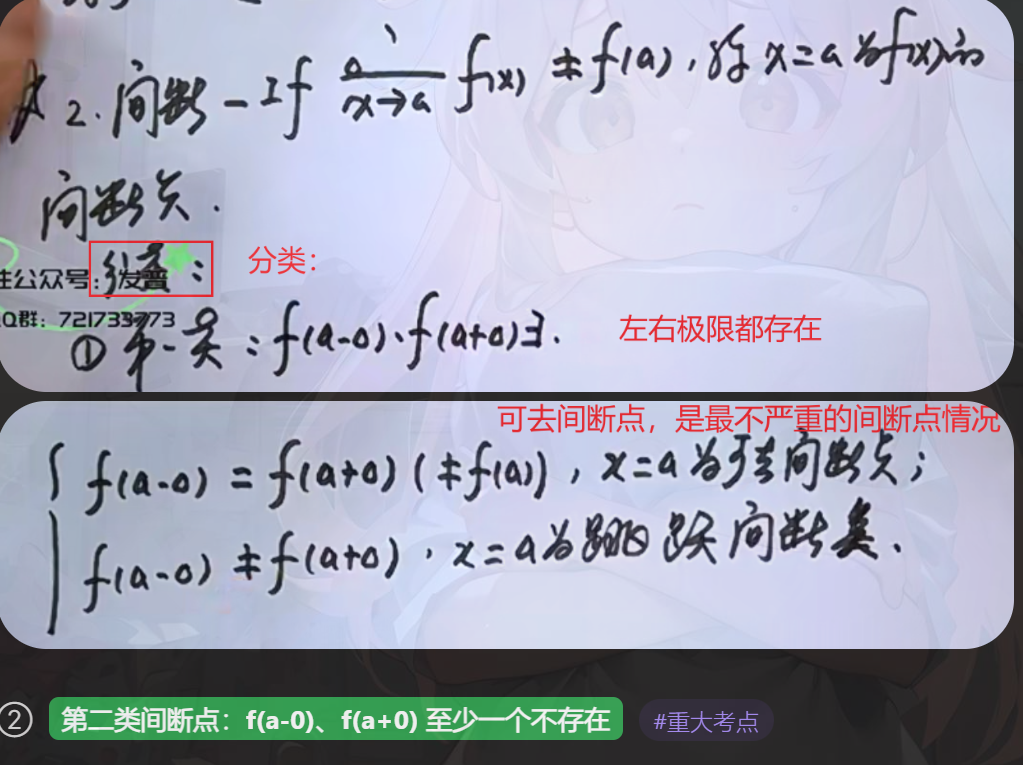 2. 间断 - If lim x→a f(x) ≠ f(a), 称 x=a 为 f(x) 的
间断点.
分类: 分类:
注公众号: 发普
QQ群: 721733773
① 第一类: f(a-0)、f(a+0)∃. 左右极限都存在
可去间断点，是最不严重的间断点情况
f(a-0) = f(a+0) (≠f(a)), x=a 为可去间断点;
f(a-0) ≠ f(a+0), x=a 为跳跃间断点.
② 第二类间断点：f(a-0)、f(a+0) 至少一个不存在 #重大考点